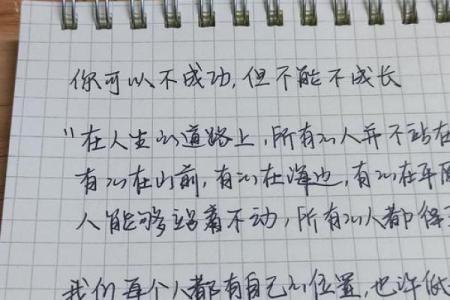 你可以不成功,但不能不成长
"在人生的道路上,所有的人并不站在
有的在山前,有的在海边,有的在平原
人能够站着不动,所有的人都得
我们每个人都有自己的位置,也许低